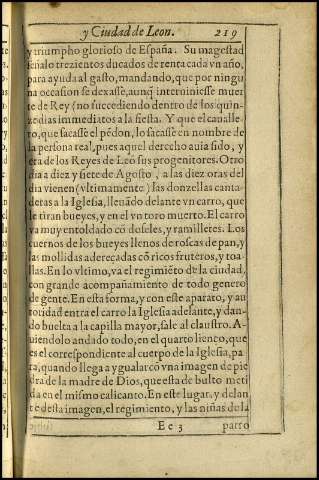 y Ciudad de Leon. 219
y triumpho glorioso de España. Su magestad
señalo trezientos ducados de renta cada vn año,
para ayuda al gasto, mandando, que por ningu
na occasion se dexasse, aunq̃ interuiniesse muer
te de Rey (no succediendo dentro de los quin-
ze dias immediatos a la fiesta. Y que el caualle-
ro, que sacasse el pẽdon, lo sacasse en nombre de
la persona real, pues aquel derecho auia sido, y
era de los Reyes de Leõ sus progenitores. Otro
dia a diez y siete de Agosto, a las diez oras del
dia vienen (vltimamente) las donzellas canta-
deras a la Iglesia, lleuãdo delante vn carro, que
le tiran bueyes, y en el vn toro muerto. El carro
va muy entoldado cõ doseles, y ramilletes. Los
cuernos de los bueyes llenos de roscas de pan, y
las mollidas adereçadas cõ ricos fruteros, y toa-
llas. En lo vltimo, va el regimiẽto de la ciudad,
con grande acompañamiento de todo genero
de gente. En esta forma, y con este aparato, y au
toridad entra el carro la Iglesia adelante, y dan-
do buelta a la capilla mayor, sale al claustro. A-
uiendolo andado todo, en el quarto liento, que
es el correspondiente al cuerpo de la Iglesia, pa
ra, quando llega a ygualar cõ vna imagen de pie
dra de la madre de Dios, que esta de bulto meti
da en el mismo calicanto. En este lugar, y delan
te desta imagen, el regimiento, y las niñas de la
Ee 3 parro